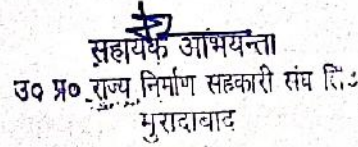 सहायक अभियन्ता
उ० प्र० राज्य निर्माण सहकारी संघ लि०
मुरादाबाद